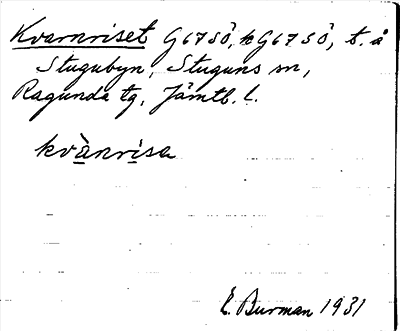 Kvarnriset G67SÖ, k G67SÖ, t. å
Stugubyn, Stuguns sn,
Ragunda tg, Jämtl. l.
kvànrisa
E. Burman 1931